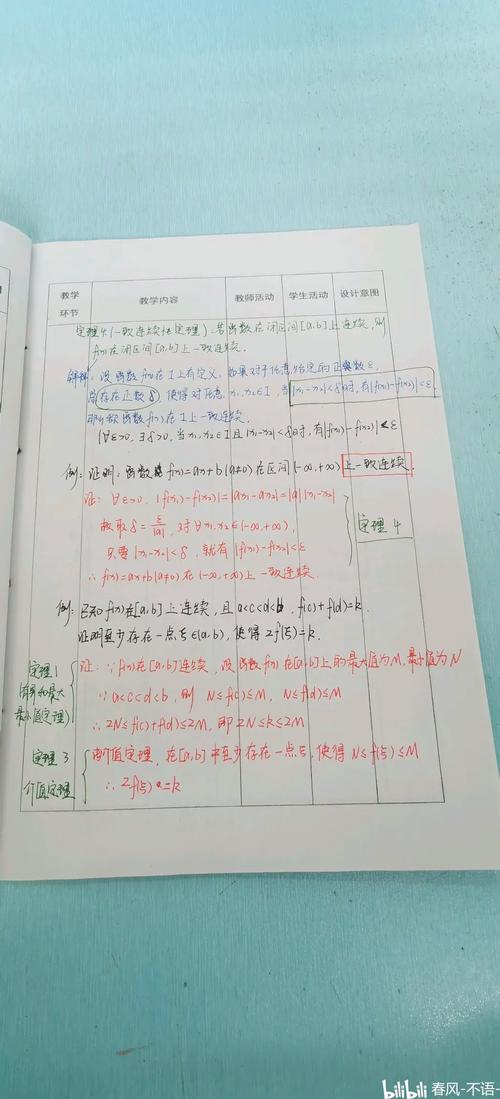 教学环节 教学内容 教师活动 学生活动 设计意图
定理4(一致连续性定理):若函数在闭区间[a,b]上连续,则
f(x)在闭区间[a,b]上一致连续.
解释:设函数f(x)在I上有定义,如果对于任意给定的正数ε,
总存在正数δ,使得对任意x₁,x₂∈I,当|x₁-x₂|<δ时,有|f(x₁)-f(x₂)|<ε,
那么称函数f(x)在I上一致连续.
|∀ε>0,∃δ>0,当x₁,x₂∈I且|x₁-x₂|<δ时,有|f(x₁)-f(x₂)|<ε
例:证明:函数f(x)=ax+b(a≠0)在区间(-∞,+∞)上一致连续.
证:∀ε>0,|f(x₁)-f(x₂)|=|ax₁-ax₂|=|a||x₁-x₂|
故取δ=ε/|a|,对∀x₁,x₂∈(-∞,+∞),
只要|x₁-x₂|<δ,就有|f(x₁)-f(x₂)|<ε
∴f(x)=ax+b(a≠0)在(-∞,+∞)上一致连续.
定理4
例:已知f(x)在[a,b]上连续,且a<c<d<b,f(c)+f(d)=k.
证明至少存在一点ξ∈(a,b),使得2f(ξ)=k.
定理1
(有界和最大
最小值定理)
证:∵f(x)在[a,b]连续,设函数f(x)在[a,b]上的最大值为M,最小值为N
∵a<c<d<b,则N≤f(c)≤M,N≤f(d)≤M
∴2N≤f(c)+f(d)≤2M,即2N≤k≤2M
定理3
介值定理
由介值定理,在[a,b]中至少存在一点ξ,使得N≤f(ξ)≤M
∴2f(ξ)=k
bilibili 春风-不语-